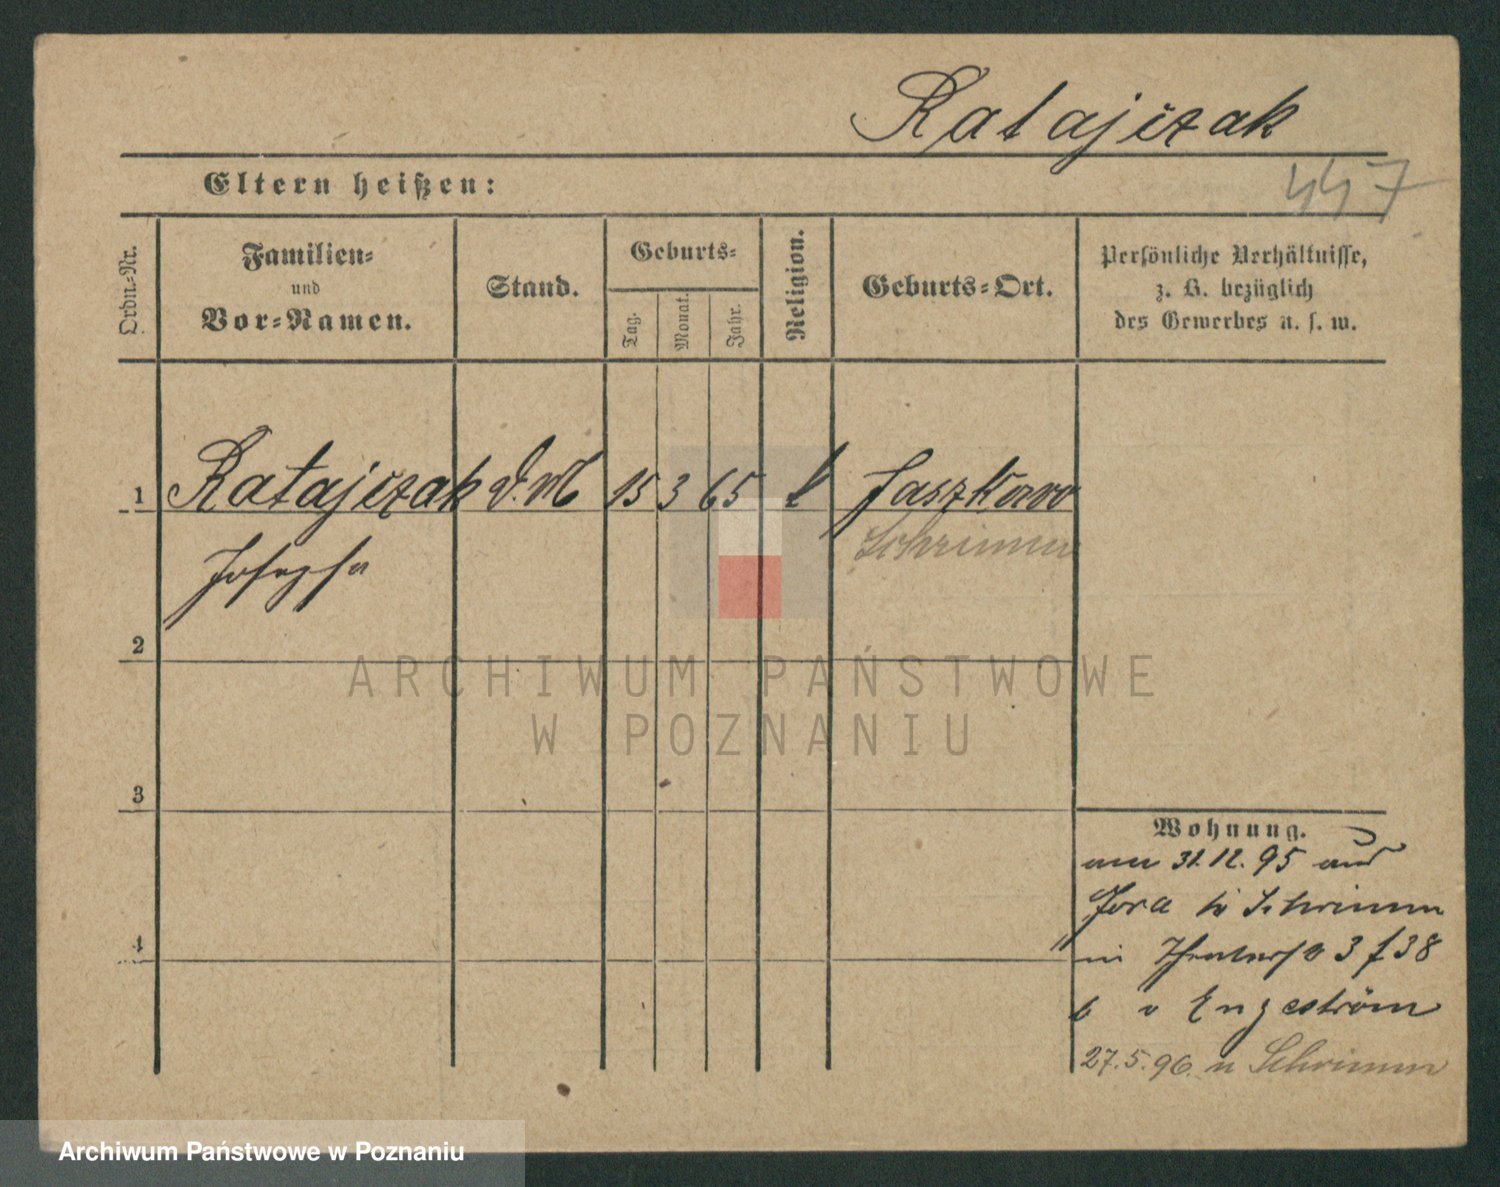 Ratajczak
447
Eltern heißen:
Ordn.-Nr.
Familien-
und
Vor-Namen.
Stand.
Geburts-
Tag.
Monat.
Jahr.
Religion.
Geburts-Ort.
Persönliche Verhältnisse,
z. B. bezüglich
des Gewerbes u. s. w.
1 Ratajczak D.M 15 3 65 k Jaszkowo
Josepha Schrimm
2
3
4
Wohnung.
am 31.12.95 aus
b Schrimm
in 3 38
b v Engeström
27.5.96. n Schrimm
ARCHIWUM PAŃSTWOWE
W POZNANIU
Archiwum Państwowe w Poznaniu